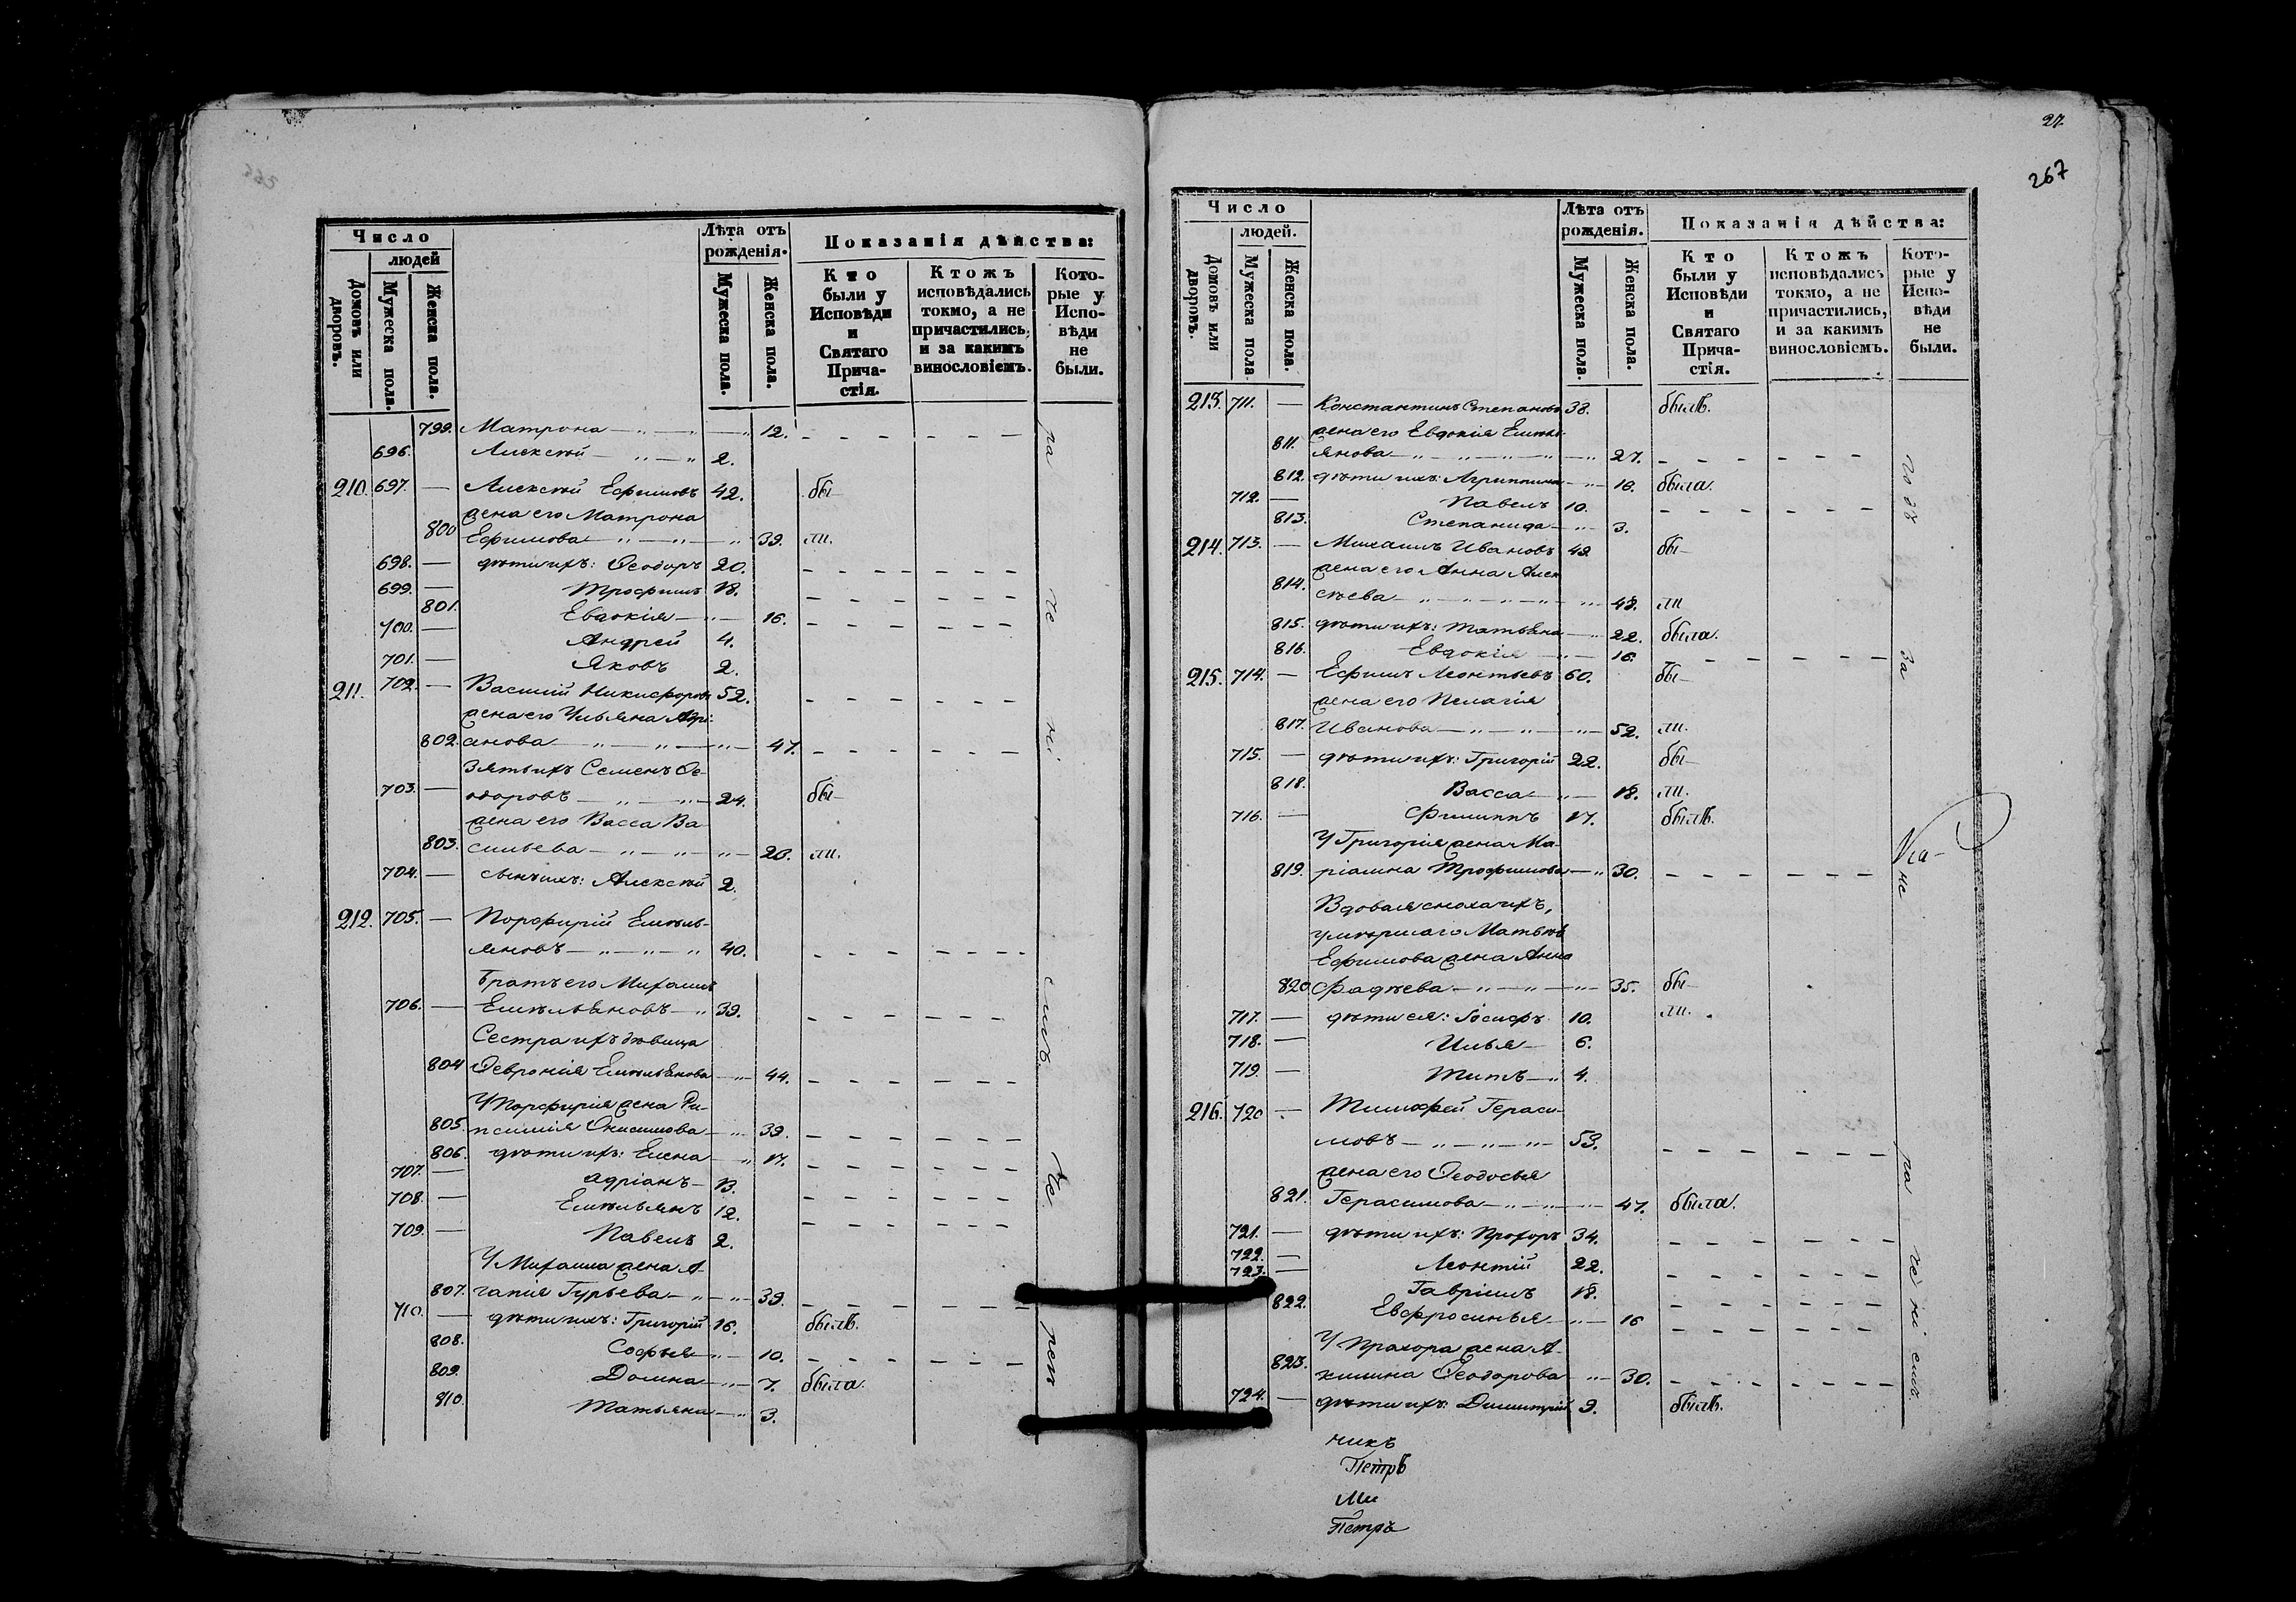 Число
людей
Домовъ или дворовъ.
Мужеска пола.
Женска пола.
Лѣта отъ рожденія.
Мужеска пола.
Женска пола.
Показанія дѣйства:
Кто были у Исповѣди и Святаго Причастія.
Ктожъ исповѣдались токмо, а не причастились, и за какимъ винословіемъ.
Которые у Исповѣди не были.
799. Матрона — „ — „ — „ 12.
696. Алексѣй — „ — „ 2.
210. 697. — Алексѣй Ефимовъ 42. бы-
жена его Матрона
800 Ефимова — „ — „ — „ 39. ли.
698. — дѣти ихъ: Ѳеодоръ 20.
699. — Трофимъ 18.
801. Евдокія — „ — 16.
700. — Андрей 4.
701. — Яковъ 2.
211. 702. — Василій Никифоровъ 52.
жена его Ульяна Адрі-
802. анова — „ — „ — „ — 47.
Зять ихъ Семенъ Ѳе-
703. — одоровъ — „ — „ — 24. бы-
жена его Васса Ва-
803. сильева — „ — „ — „ — 20. ли.
704. — сынъ ихъ: Алексѣй 2.
212. 705. — Порфирій Емель-
яновъ — „ — „ — „ 40.
Братъ его Михаилъ
706. — Емельяновъ — „ 39.
Сестра ихъ дѣвица
804 Ѳевронія Емельянова — „ — 44.
У Порфирія жена Ри-
805. псимія Онисимова — „ — 39.
806. дѣти ихъ: Елена — „ 17.
707. — Адріанъ — 13.
708. — Емельянъ 12.
709. — Павелъ 2.
У Михаила жена А-
807. гапія Гурьева — „ — „ — 39.
710. — дѣти ихъ: Григорій 16. былъ.
808. Софья — „ — 10.
809. Домна — „ — 7. была.
810. Татьяна — „ 3.
27.
267
Число
людей.
Домовъ или дворовъ.
Мужеска пола.
Женска пола.
Лѣта отъ рожденія.
Мужеска пола.
Женска пола.
Показанія дѣйства:
Кто были у Исповѣди и Святаго Причастія.
Ктожъ исповѣдались токмо, а не причастились, и за какимъ винословіемъ.
Которые у Исповѣди не были.
213. 711. — Константинъ Степановъ 38. былъ.
жена его Евдокія Емель-
811. янова — „ — „ — „ — „ — 27.
812. дѣти ихъ: Агриппина — „ — 16. была.
712. — Павелъ 10.
813. Степанида — „ — 3.
214. 713. — Михаилъ Ивановъ 49. бы-
жена его Анна Алек
814. сѣева — „ — „ — „ — „ — 48. ли
815. дѣти ихъ: Татьяна — „ 22. была.
816. Евдокія — „ — 16.
215. 714. — Ефимъ Леонтьевъ 60. бы-
жена его Пелагія
817. Иванова — „ — „ — „ — 52. ли.
715. — дѣти ихъ: Григорій 22. бы-
818. Васса — „ — 18. ли.
716. — Филиппъ 17. былъ.
У Григорія жена Ма-
819. ріамна Трофимова — „ 30.
Вдовая сноха ихъ,
умершаго Матвѣя
Ефимова жена Анна
820. Фадѣева — „ — „ — „ — 35. бы-
717. — дѣти ея: Іосифъ 10. ли.
718. — Илья — 6.
719. — Титъ — „ 4.
216. 720 — Тимофей Гераси-
мовъ — „ — „ — „ — 53.
жена его Ѳеодосья
821. Герасимова — „ — „ — 47. была.
721. — дѣти ихъ: Прохоръ 34.
722. — Леонтій 22.
723. — Гавріилъ 18.
822. Евфросинья — „ — 16
У Прохора жена А-
823. килина Ѳеодорова — „ — 30.
724. — дѣти ихъ: Димитрій 9. былъ.
никъ
Петръ
Ми
Петръ